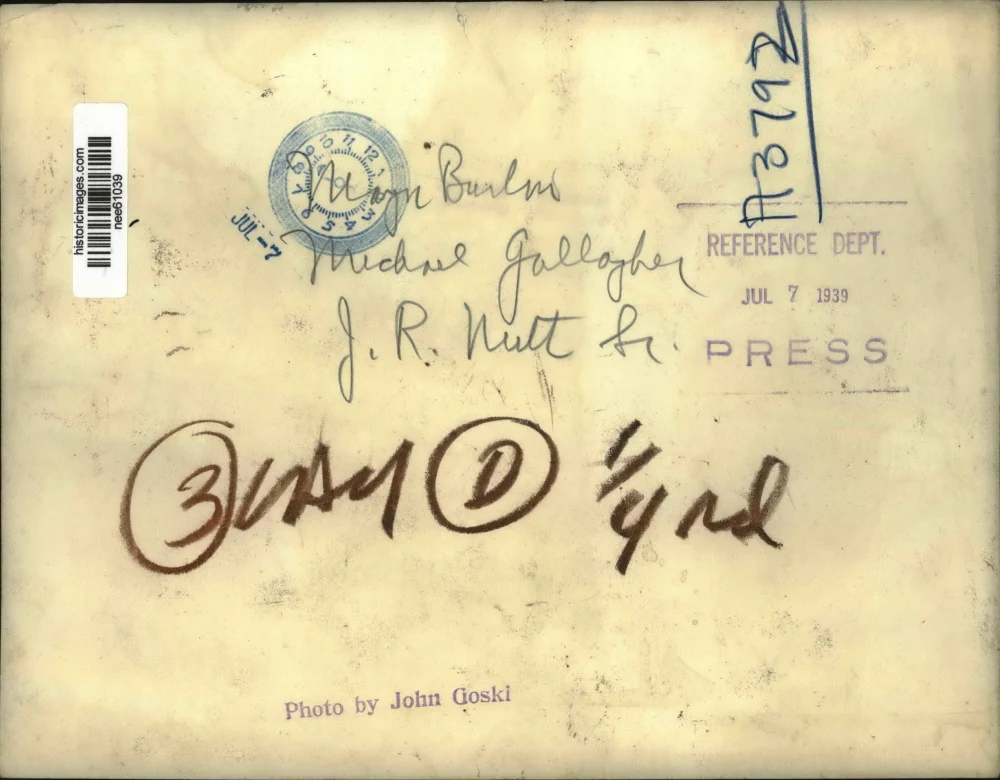 A3792
historicimages.com
nee61039
9 10 11 12 1
8 7 6 5 4 3
JUL -7
Mayor Burton
Michael Gallagher
J. R. Nutt Sr.
REFERENCE DEPT.
JUL 7 1939
PRESS
3 D 1/4 rd
Photo by John Goski